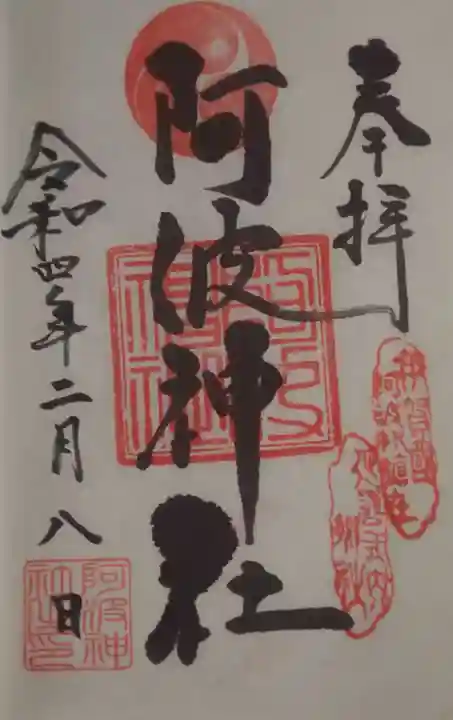 奉拝
阿波神社
令和四年二月八日
阿波神
社之印